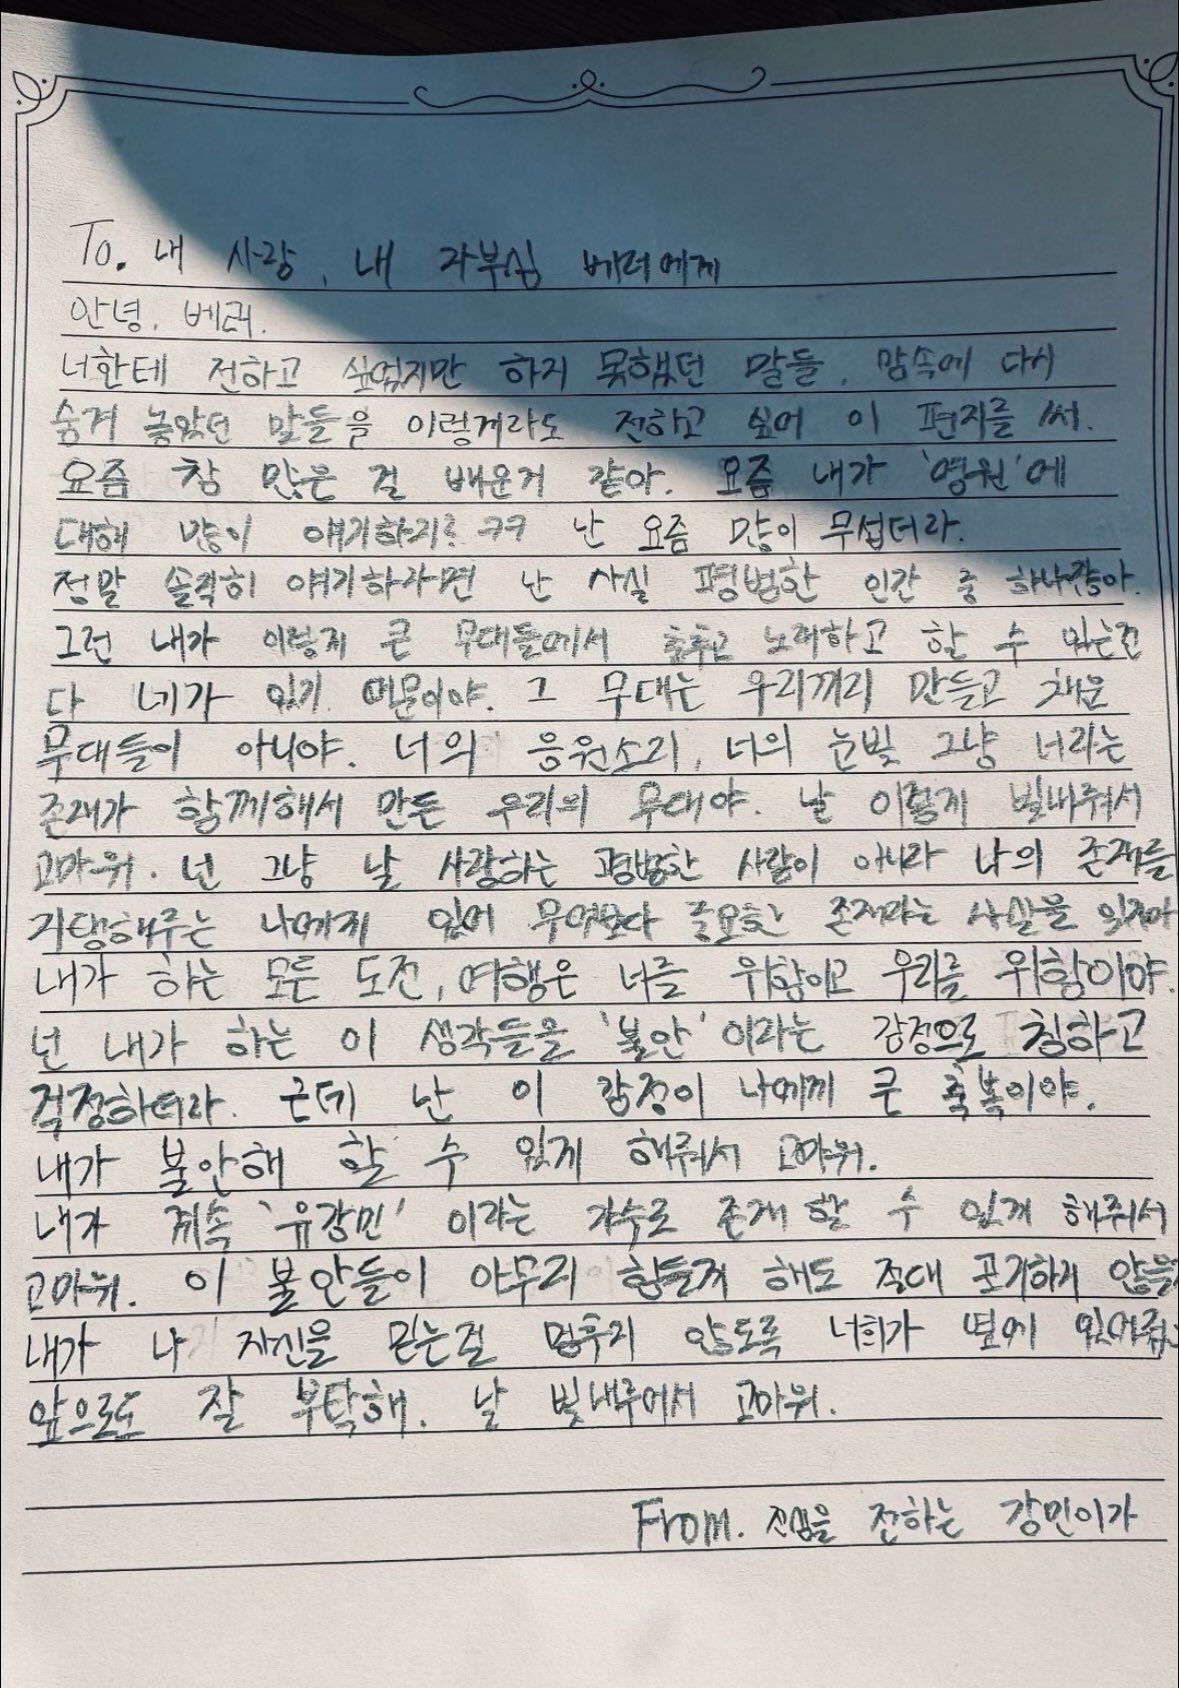 To. 내 사랑, 내 자부심 베러에게
안녕. 베러.
너한테 전하고 싶었지만 하지 못했던 말들, 맘속에 다시
숨겨 놓았던 말들을 이렇게라도 전하고 싶어 이 편지를 써.
요즘 참 많은 걸 배운거 같아. 요즘 내가 '영원'에
대해 많이 얘기하지? ㅋㅋ 난 요즘 많이 무섭더라.
정말 솔직히 얘기하자면 난 사실 평범한 인간 중 하나잖아.
그런 내가 이렇게 큰 무대들에서 춤추고 노래하고 할 수 있는건
다 네가 있기 때문이야. 그 무대는 우리끼리 만들고 채운
무대들이 아니야. 너의 응원소리, 너의 눈빛 그냥 너라는
존재가 함께해서 만든 우리의 무대야. 날 이렇게 빛내줘서
고마워. 넌 그냥 날 사랑하는 평범한 사람이 아니라 나의 존재를
지탱해주는 나에게 있어 무엇보다 중요한 존재라는 사실을 잊지마
내가 하는 모든 도전, 여행은 너를 위함이고 우리를 위함이야.
넌 내가 하는 이 생각들을 '불안'이라는 감정으로 칭하고
걱정하더라. 근데 난 이 감정이 나에게 큰 축복이야.
내가 불안해 할 수 있게 해줘서 고마워.
내가 계속 '유강민' 이라는 가수로 존재 할 수 있게 해줘서
고마워. 이 불안들이 아무리 힘들게 해도 절대 포기하지 않을게
내가 나 자신을 믿는걸 멈추지 않도록 너희가 옆에 있어줘.
앞으로도 잘 부탁해. 날 빛내주어서 고마워.
From. 진심을 전하는 강민이가